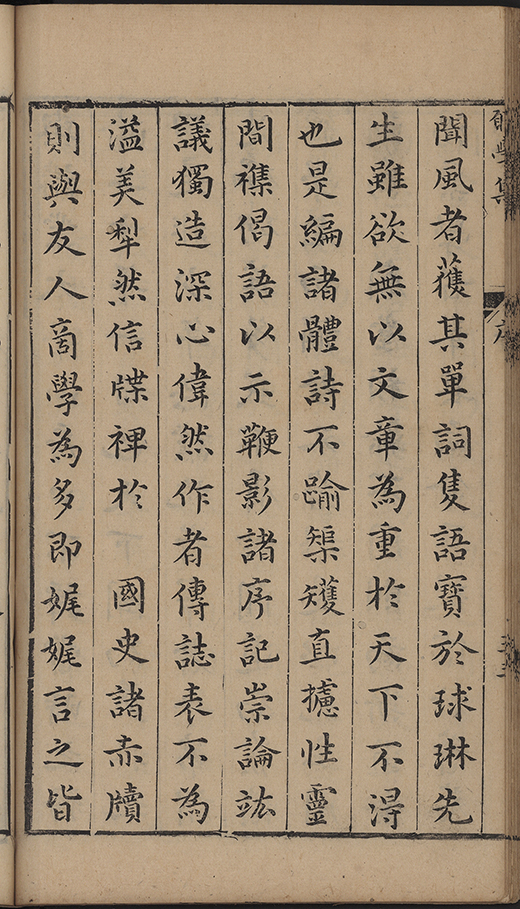 聞風者蒦其單詞隻語寶於球琳先
生雖欲無以文章為重於天下不得
也是編諸體詩不踰榘矱直攄性靈
間襍偈語以示鞭影諸序記崇論竑
議獨造深心偉然作者傳誌表不為
溢美犁然信牒裨於　國史諸赤牘
則與友人商學為多即娓娓言之皆